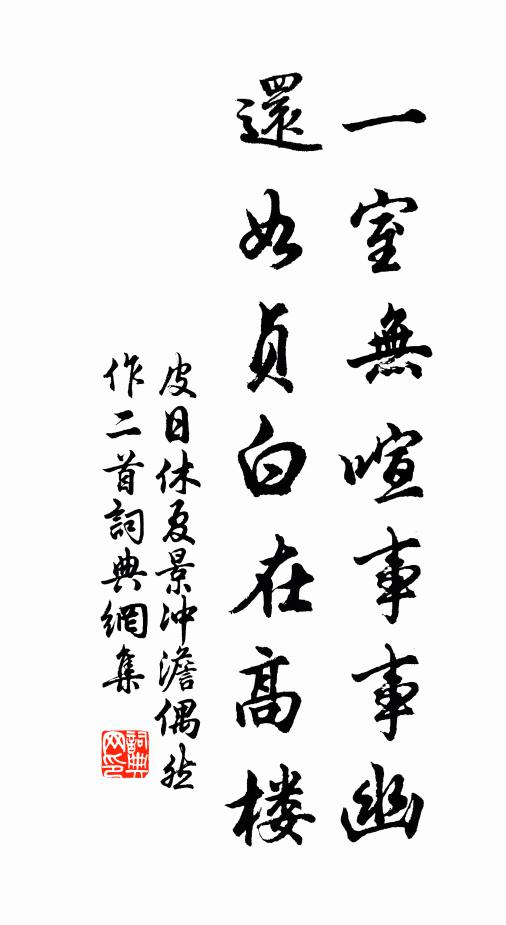 一室無喧事事幽
還如貞白在高楼
皮日休夏景沖澹偶然
作二首詞典網集
詞典
网印